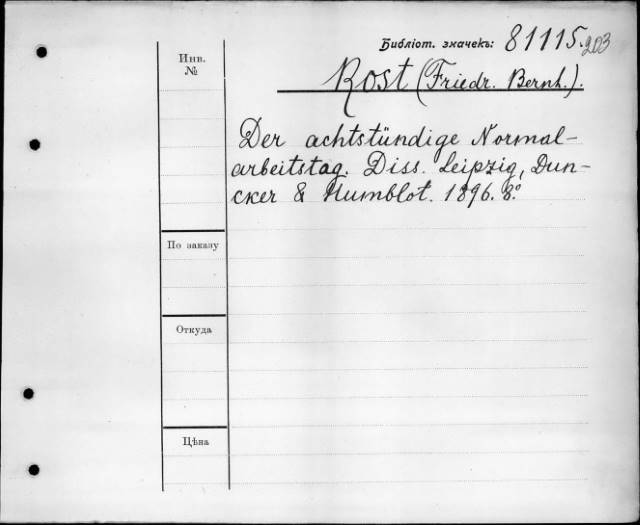 Библіот. значекъ: 81115.203
Инв.
№
Rost (Friedr. Bernh.).
Der achtstündige Normal-
arbeitstag. Diss. Leipzig, Dun-
cker & Humblot. 1896. 8.°
По заказу
Откуда
Цѣна